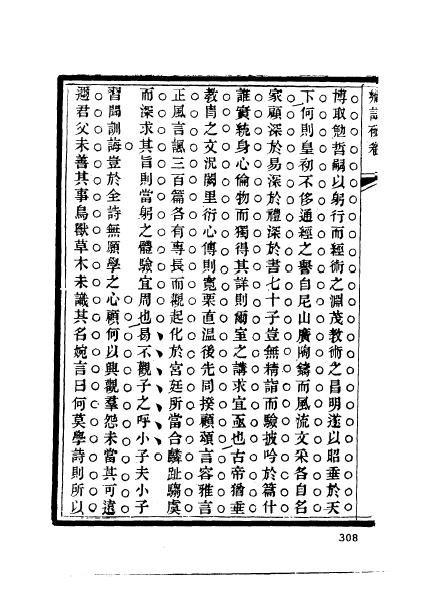 博取勉哲嗣以躬行而經術之淵茂教術之昌明遂以昭垂於天
下何則皇初不侈通經之譽自尼山廣陶鑄而風流文采各自名
家顧深於易深於禮深於書七十子豈無精詣而驗披吟於篇什
誰實統身心倫物而獨得其詳則爾室之講求宜亟也古帝猶垂
教胄之文況闕里衍心傳則寬栗直温後先同揆顧頌言容雅言
正風言諷三百篇各有專長而觀起化於宮廷所當合麟趾騶虞
而深求其旨則當躬之體驗宜周也曷不觀子之呼小子夫小子
習聞訓誨豈於全詩無願學之心顧何以興觀羣怨未當其可遠
邇君父未善其事鳥獸草木未識其名婉言曰何莫學詩則所以
308